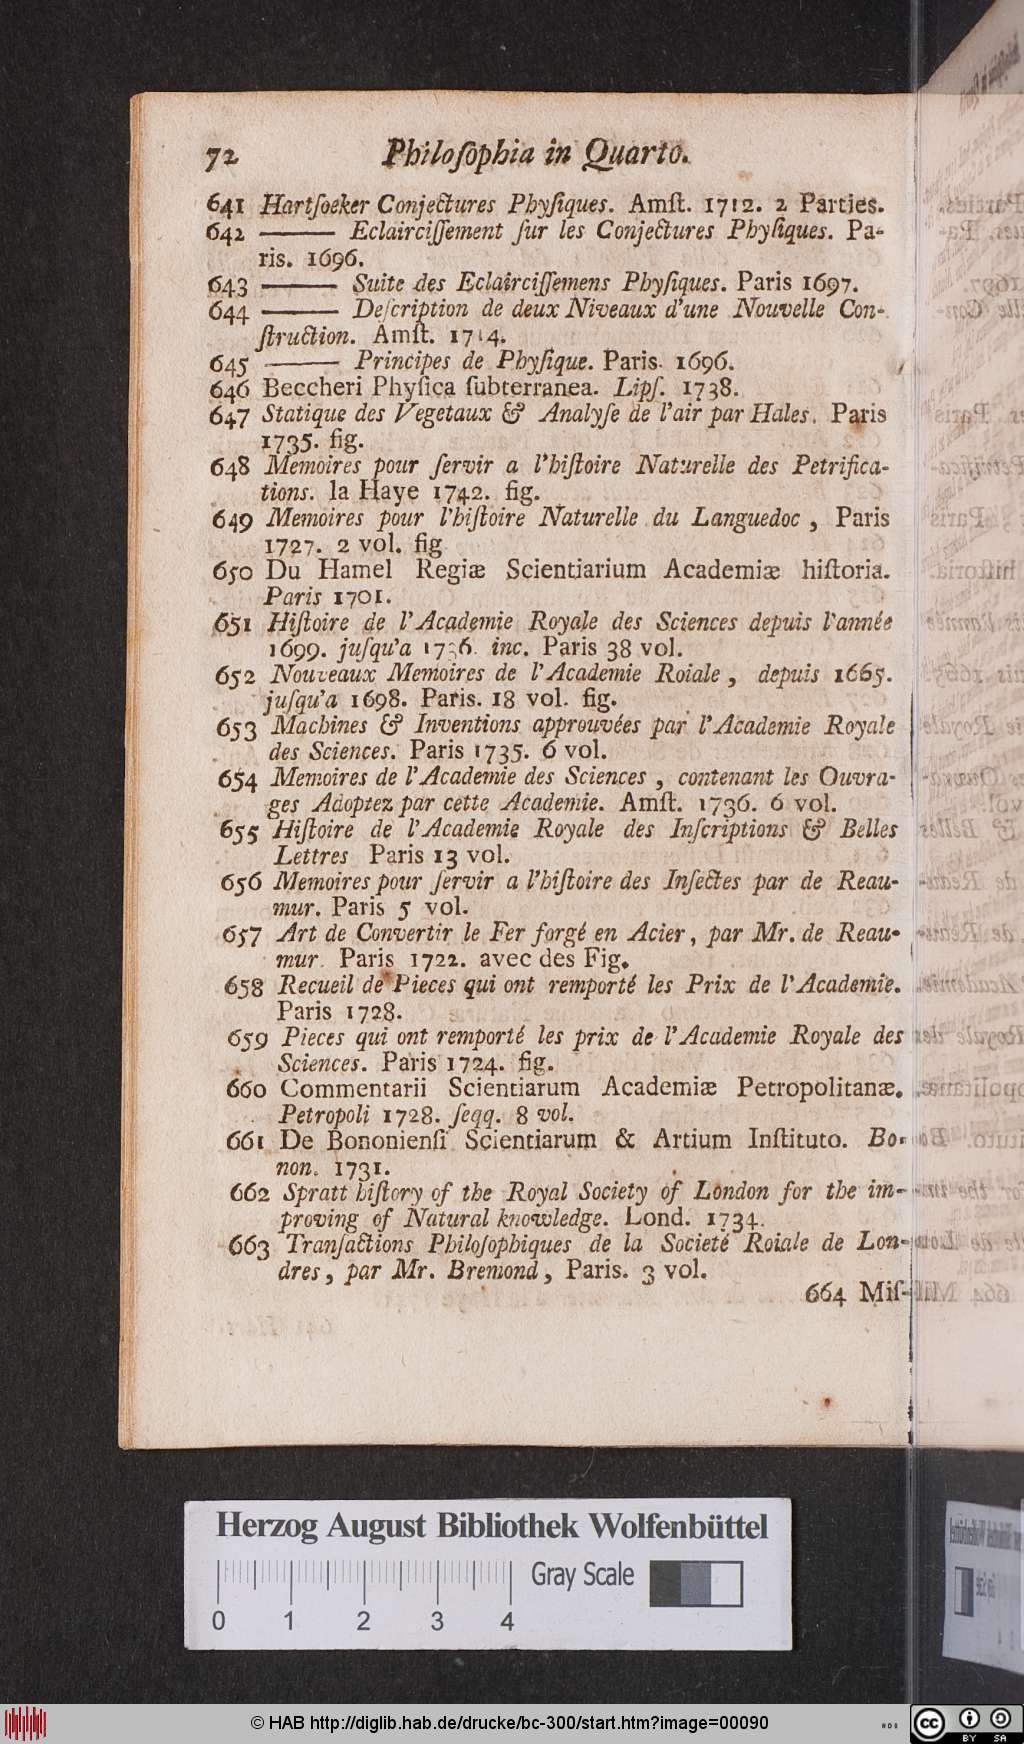 72 Philoſophia in Quarto.
641 Hartſoeker Conjectures Phyſiques. Amſt. 1712. 2 Parties.
642 ——— Eclairciſſement ſur les Conjectures Phyſiques. Pa-
ris. 1696.
643 ——— Suite des Eclairciſſemens Phyſiques. Paris 1697.
644 ——— Deſcription de deux Niveaux d'une Nouvelle Con-
ſtruction. Amſt. 1714.
645 ——— Principes de Phyſique. Paris. 1696.
646 Beccheri Phyſica ſubterranea. Lipſ. 1738.
647 Statique des Vegetaux & Analyſe de l'air par Hales. Paris
1735. fig.
648 Memoires pour ſervir a l'hiſtoire Naturelle des Petrifica-
tions. la Haye 1742. fig.
649 Memoires pour l'hiſtoire Naturelle du Languedoc, Paris
1727. 2 vol. fig
650 Du Hamel Regiæ Scientiarium Academiæ hiſtoria.
Paris 1701.
651 Hiſtoire de l'Academie Royale des Sciences depuis l'année
1699. juſqu'a 1736. inc. Paris 38 vol.
652 Nouveaux Memoires de l'Academie Roiale, depuis 1665.
juſqu'a 1698. Paris. 18 vol. fig.
653 Machines & Inventions approuvées par l'Academie Royale
des Sciences. Paris 1735. 6 vol.
654 Memoires de l'Academie des Sciences, contenant les Ouvra-
ges Adoptez par cette Academie. Amſt. 1736. 6 vol.
655 Hiſtoire de l'Academie Royale des Inſcriptions & Belles
Lettres Paris 13 vol.
656 Memoires pour ſervir a l'hiſtoire des Inſectes par de Reau-
mur. Paris 5 vol.
657 Art de Convertir le Fer forgé en Acier, par Mr. de Reau-
mur. Paris 1722. avec des Fig.
658 Recueil de Pieces qui ont remporté les Prix de l'Academie.
Paris 1728.
659 Pieces qui ont remporté les prix de l'Academie Royale des
Sciences. Paris 1724. fig.
660 Commentarii Scientiarum Academiæ Petropolitanæ.
Petropoli 1728. ſeqq. 8 vol.
661 De Bononienſi Scientiarum & Artium Inſtituto. Bo-
non. 1731.
662 Spratt hiſtory of the Royal Society of London for the im-
proving of Natural knowledge. Lond. 1734.
663 Tranſactions Philoſophiques de la Societé Roiale de Lon-
dres, par Mr. Bremond, Paris. 3 vol.
664 Miſ-
Herzog August Bibliothek Wolfenbüttel
Gray Scale
0 1 2 3 4
© HAB http://diglib.hab.de/drucke/bc-300/start.htm?image=00090
cc BY SA